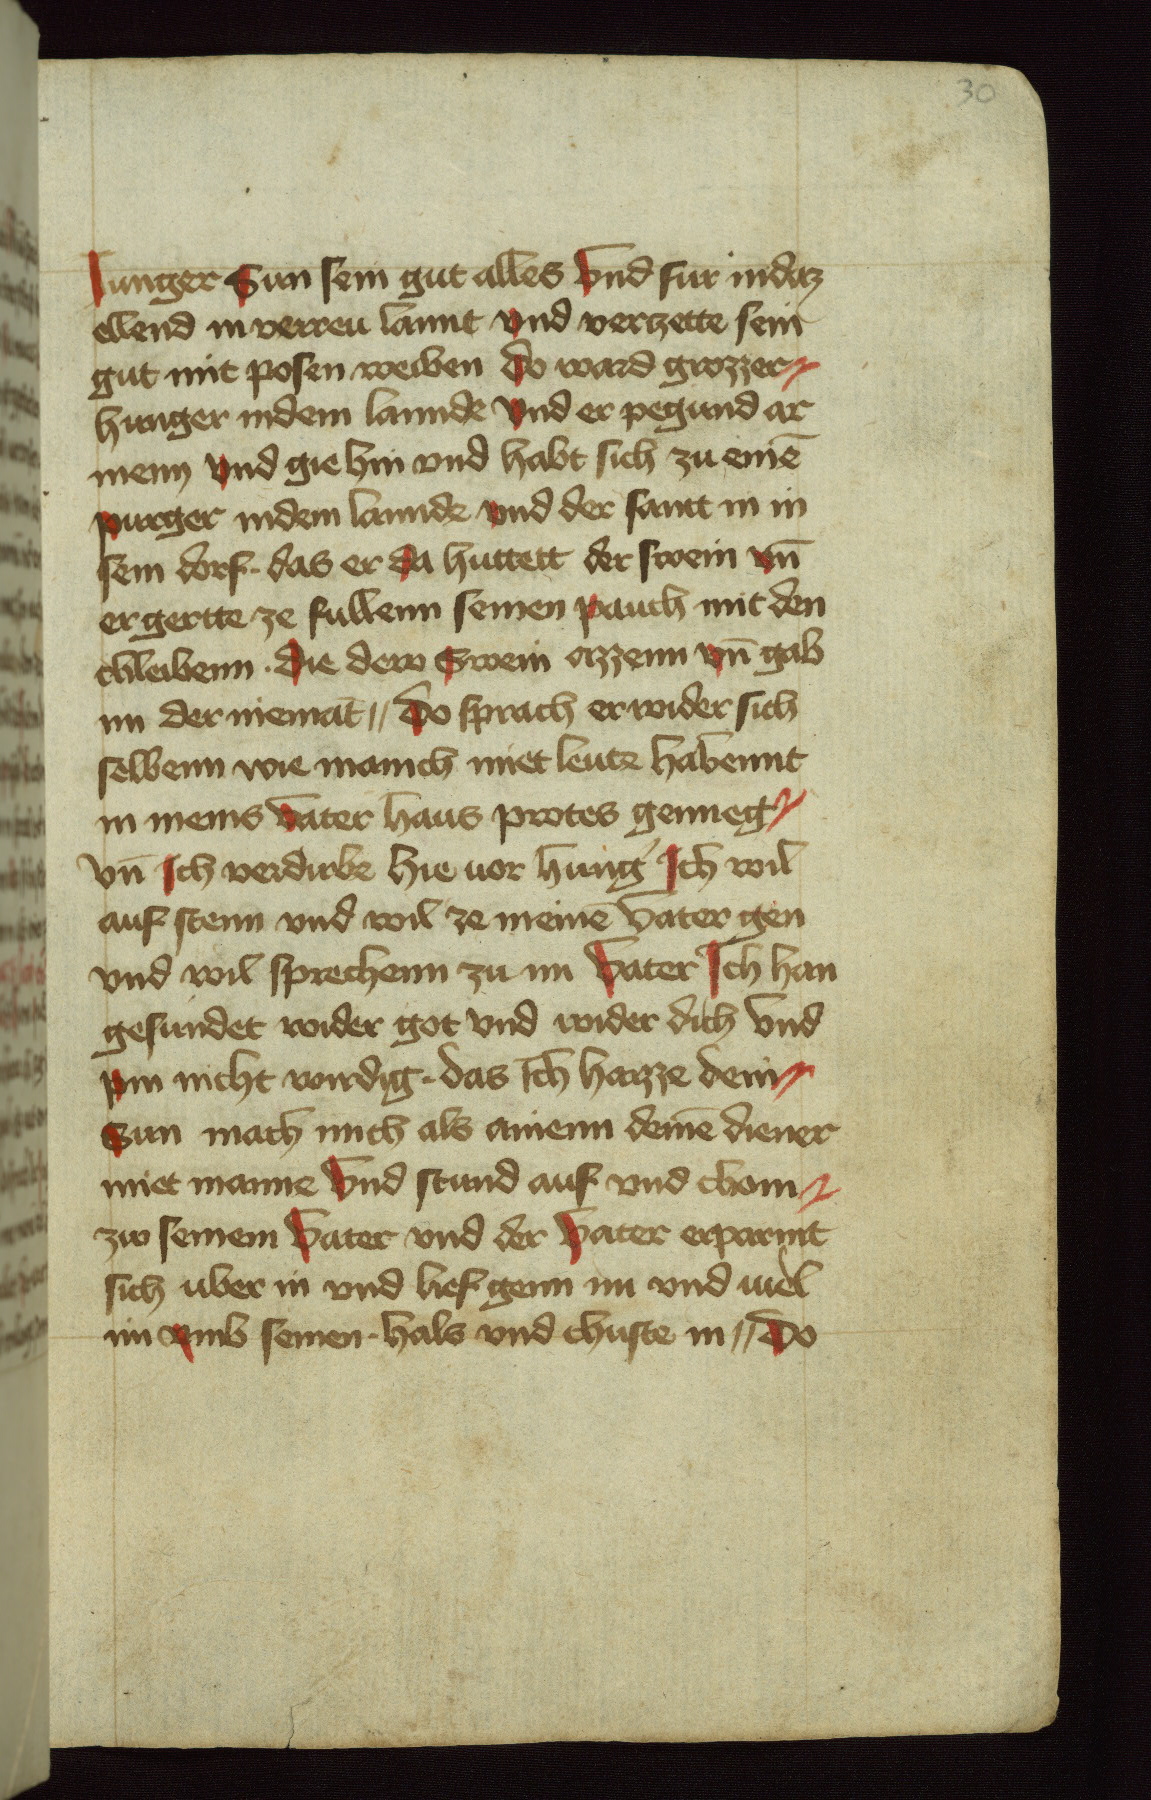 30
Iunger Sun sein gut alles Vnd fur indaz
ellend in verreu lannt vnd verzette sein
gut mit posen weiben do ward grozzer
hunger indem lannde Vnd er pegund ar
menn vnd gie hin vnd habt sich zu eine͞
purger indem lannde vnd der santt in in
sein dorf · das er da huttett der swein vn͞
er gertte ze fullenn seinen pauch mit den
chleibenn · die dew Swein azzenn vn͞ gab
im der nieman͞t // do sprach er wider sich
selbenn wie manich miet leute habennt
in meins Vater haus protes genueg
Vn͞ Ich verdirbe hie uor hung͛ Ich wil
auf stenn vnd wil ze meine͞ Vater gen
vnd wil sprechenn zu im Vater Ich han
gesundet wider got vnd wider dich Vnd
pin nicht wirdig · das Ich hazze dein
Sun mach mich als ainenn deine͞ diener
miet manne Vnd stund auf vnd chom
zw seinem Vater vnd der Vater erparmt
sich uber in vnd lief genn im vnd uiel
im vmb seinen · hals vnd chuste in // Do